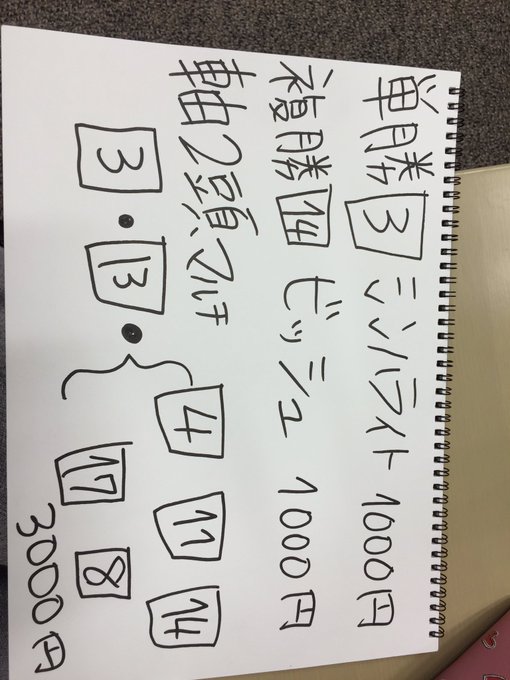 単勝 3 ミンハライト 1000円
複勝 14 ビッシュ 1000円
軸2頭マルチ
3・13・{4 11 14
17 8
3000円